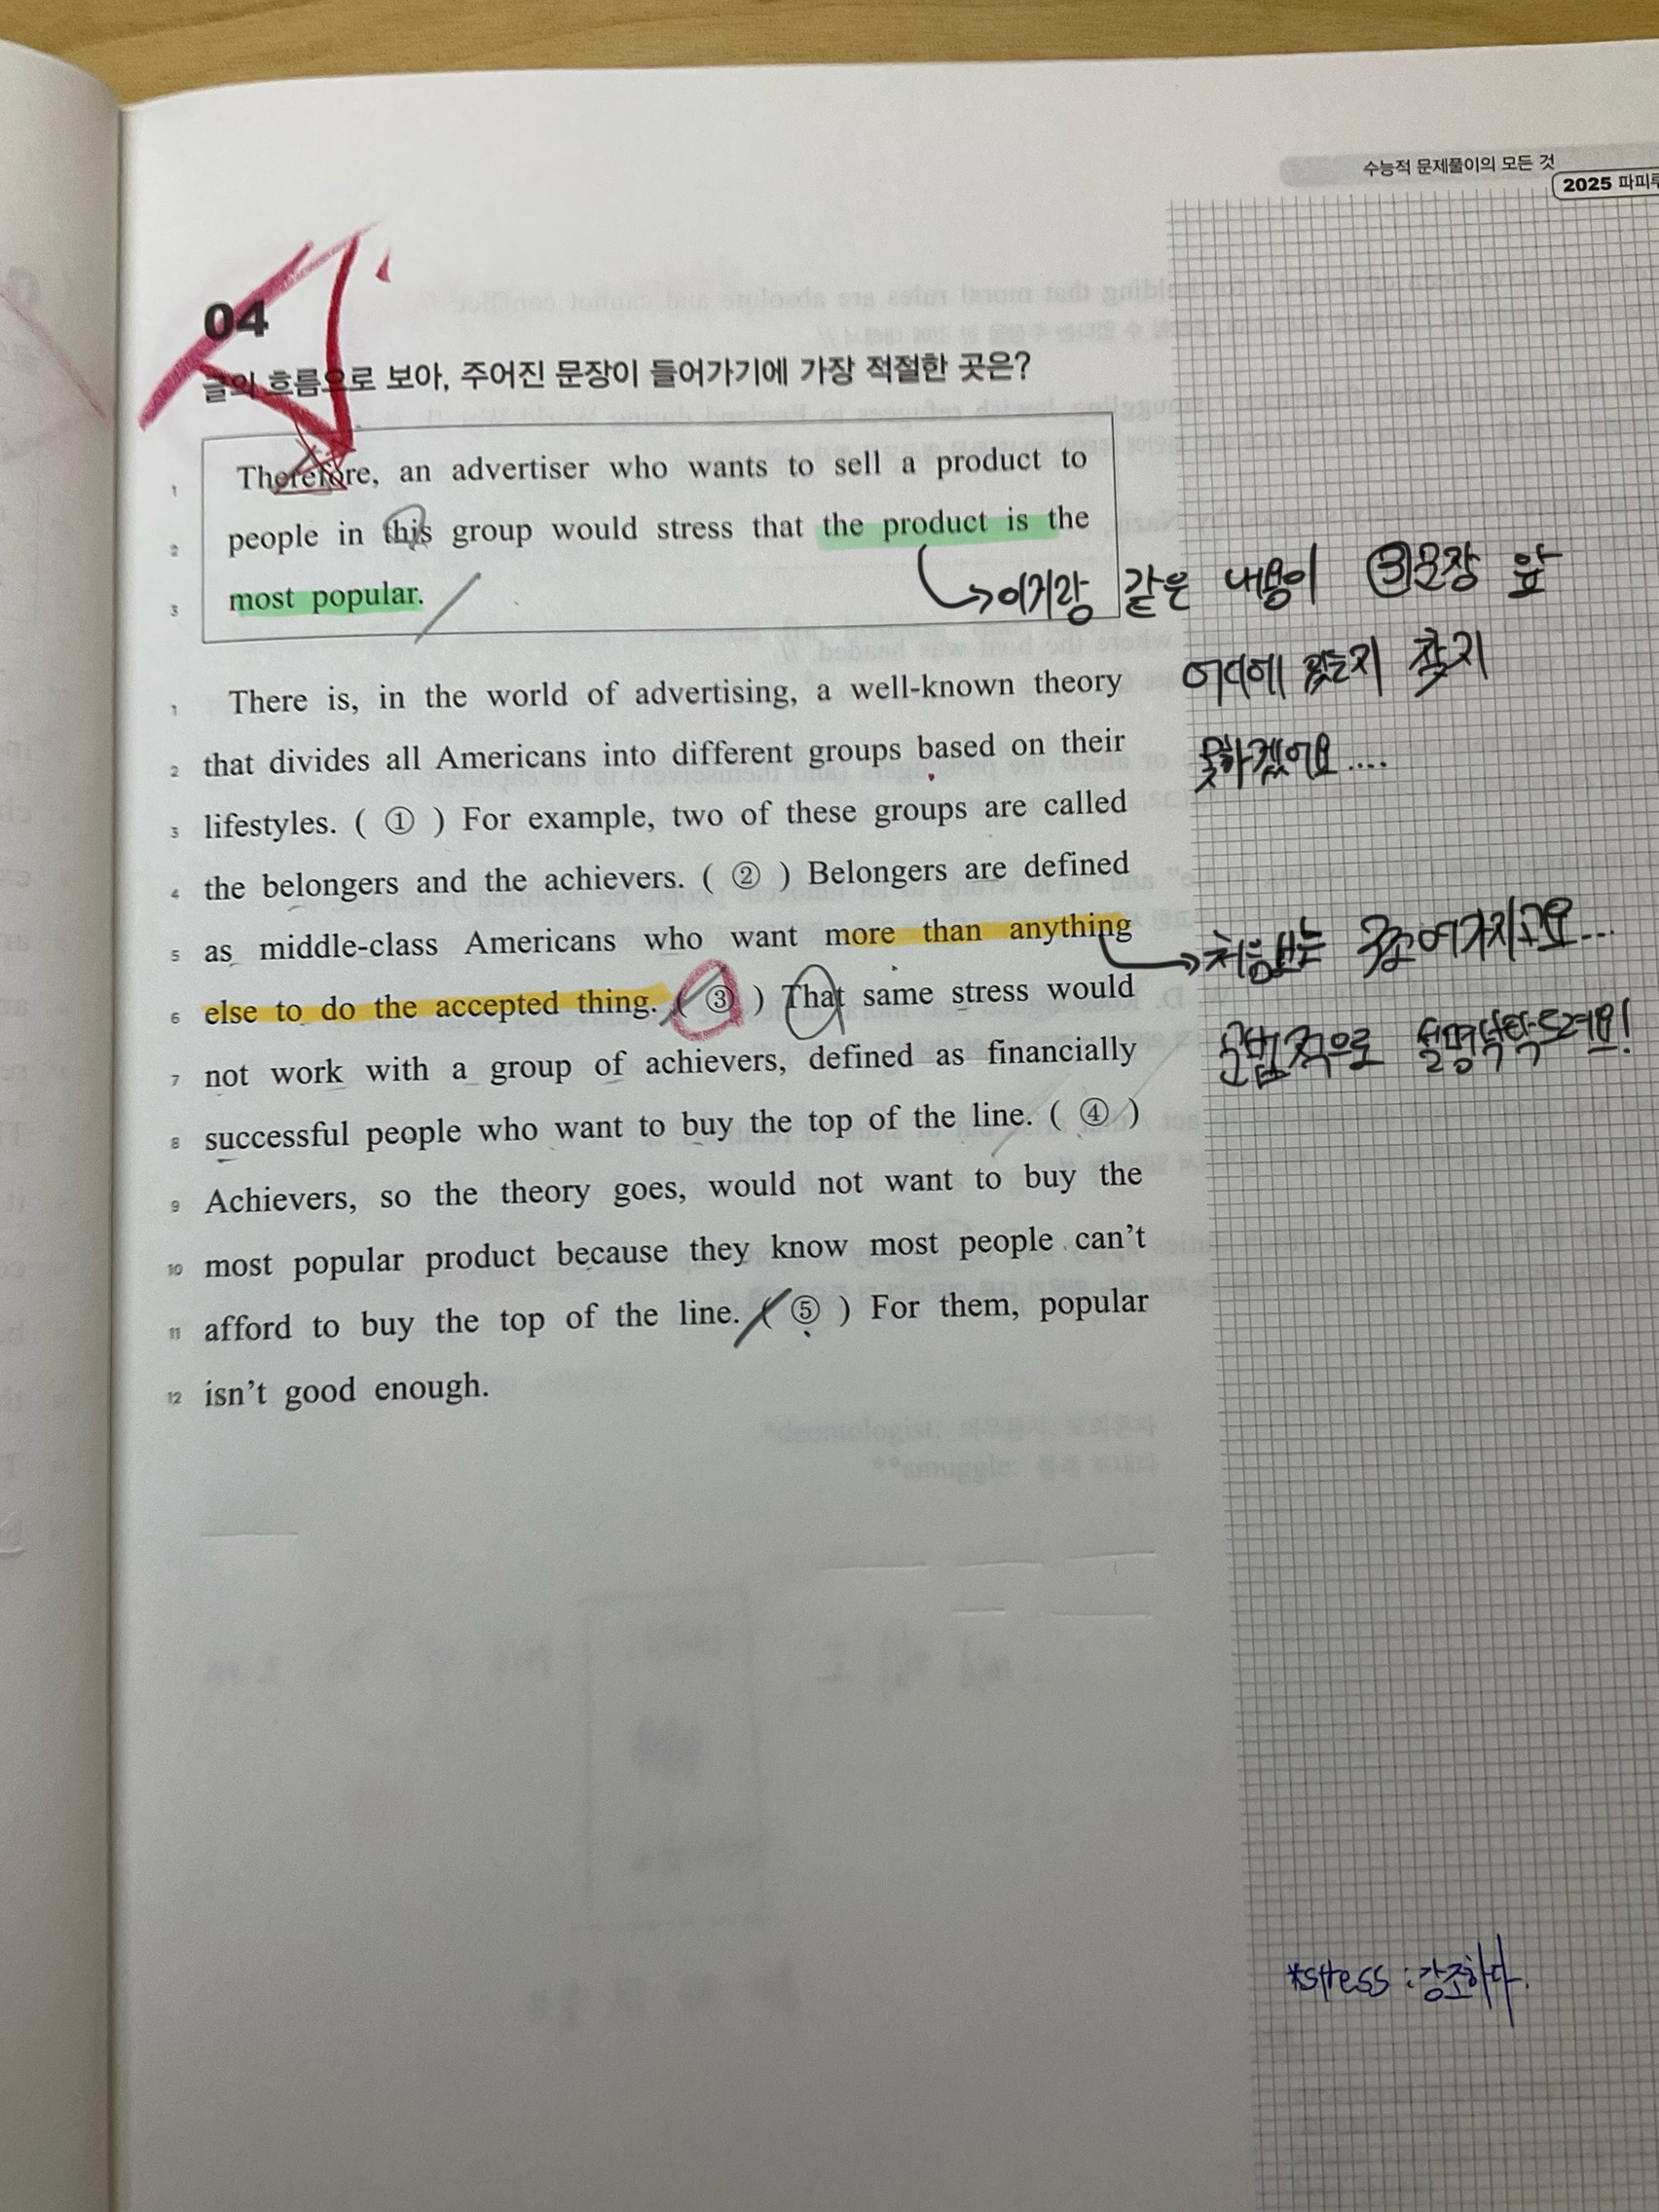 수능적 문제풀이의 모든 것
2025 파피루
04
글의 흐름으로 보아, 주어진 문장이 들어가기에 가장 적절한 곳은?
1 Therefore, an advertiser who wants to sell a product to
2 people in this group would stress that the product is the
3 most popular.
여기랑 같은 내용이 ③문장 앞
어디에 있는지 찾지
못하겠어요....
1 There is, in the world of advertising, a well-known theory
2 that divides all Americans into different groups based on their
3 lifestyles. ( ① ) For example, two of these groups are called
4 the belongers and the achievers. ( ② ) Belongers are defined
5 as middle-class Americans who want more than anything
6 else to do the accepted thing. ( ③ ) That same stress would
7 not work with a group of achievers, defined as financially
8 successful people who want to buy the top of the line. ( ④ )
9 Achievers, so the theory goes, would not want to buy the
10 most popular product because they know most people can't
11 afford to buy the top of the line. ( ⑤ ) For them, popular
12 isn't good enough.
처음보는 구조여가지고요...
문법적으로 설명부탁드려요!
*stress : 강조하다.